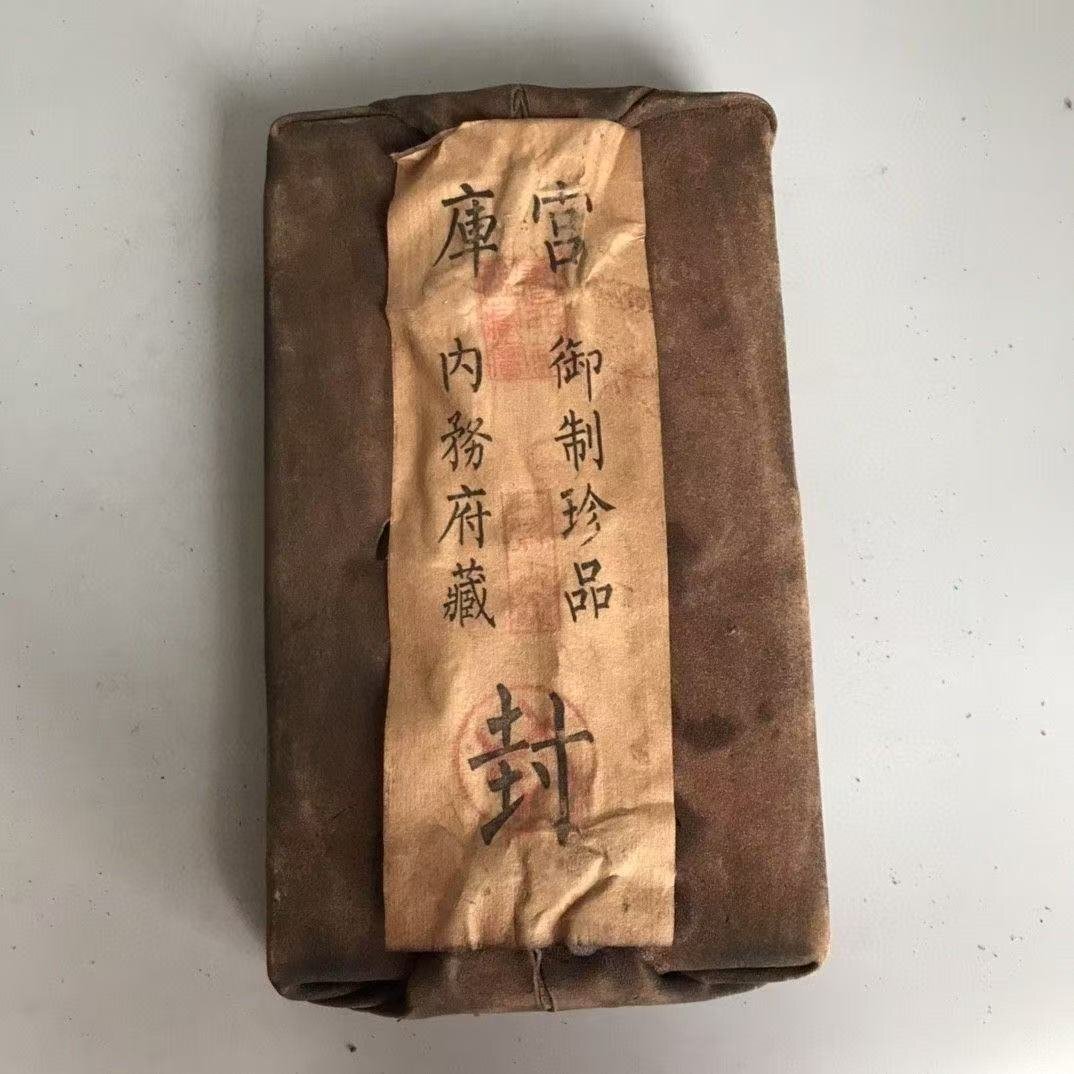 宫庫
御制珍品
内務府藏
封